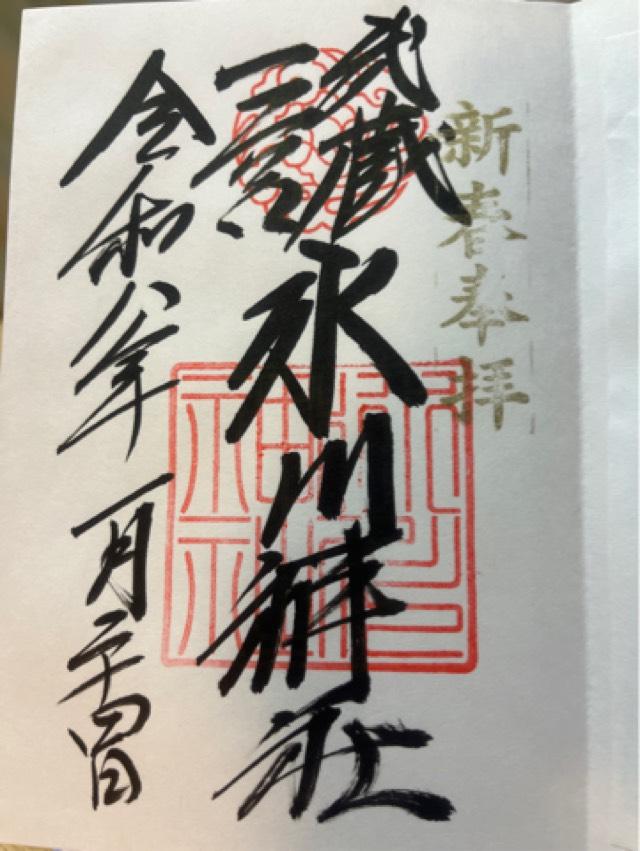 新春奉拝
武蔵
三宮
氷川神社
令和八年一月二十四日